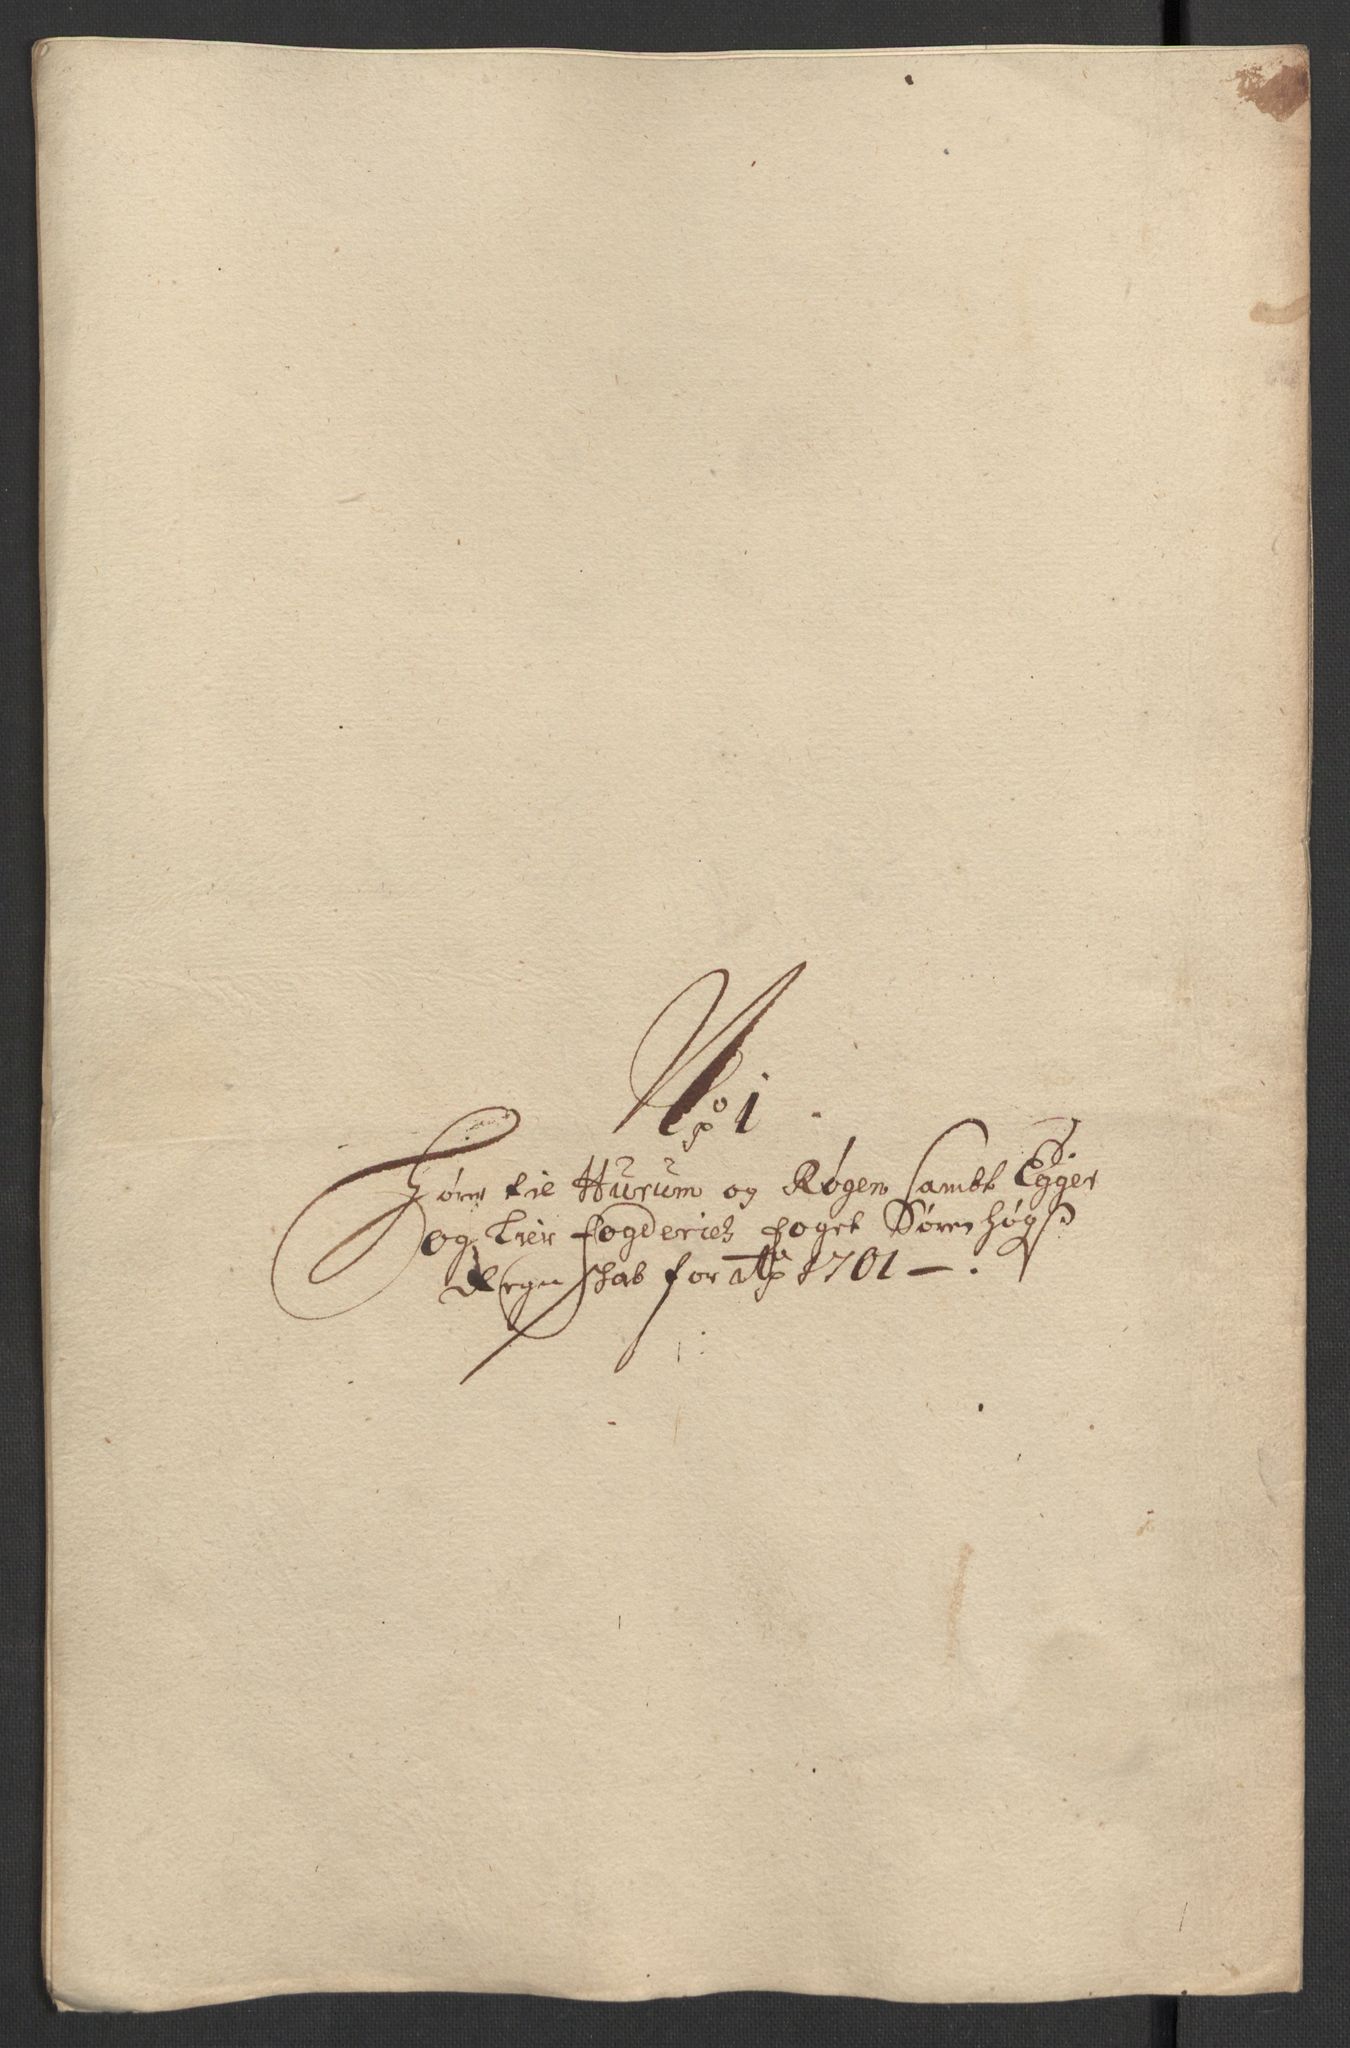 No 1
Hører til Hurum og Røgen sambt Egger
og Lier fogderiers foget Søren Høgs
Regenskab for Ao 1701 — .